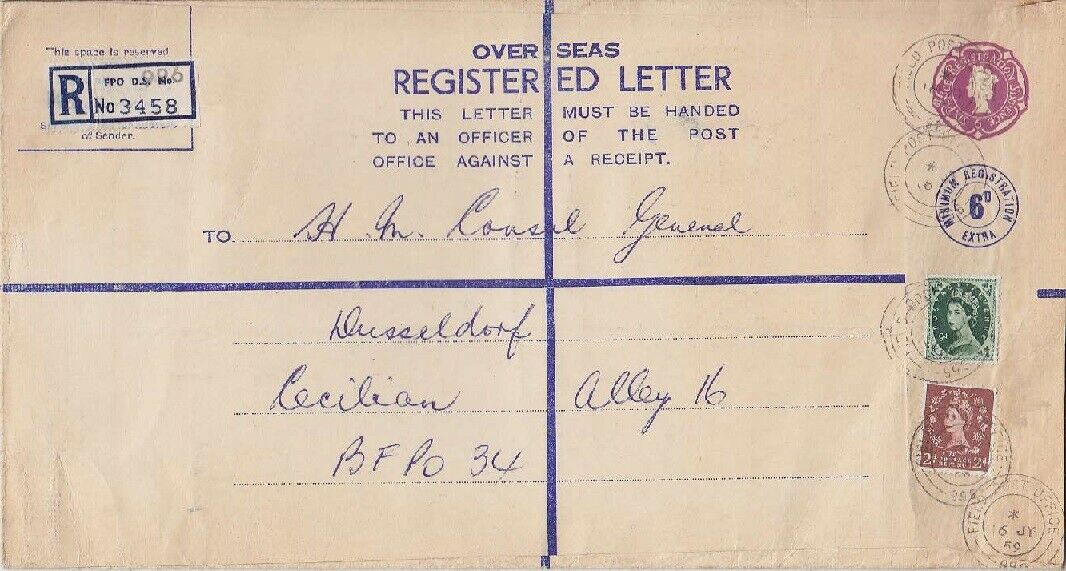 This space is reserved
FPO D.S. No.
996
R
No 3458
of Sender.
OVERSEAS
REGISTERED LETTER
THIS LETTER MUST BE HANDED
TO AN OFFICER OF THE POST
OFFICE AGAINST A RECEIPT.
MINIMUM REGISTRATION
6D
EXTRA
TO H. M. Consul General
Dusseldorf
Cecilian Alley 16
BFPO 34
2D 2D
FIELD POST OFFICE
*
6 JY
59
996